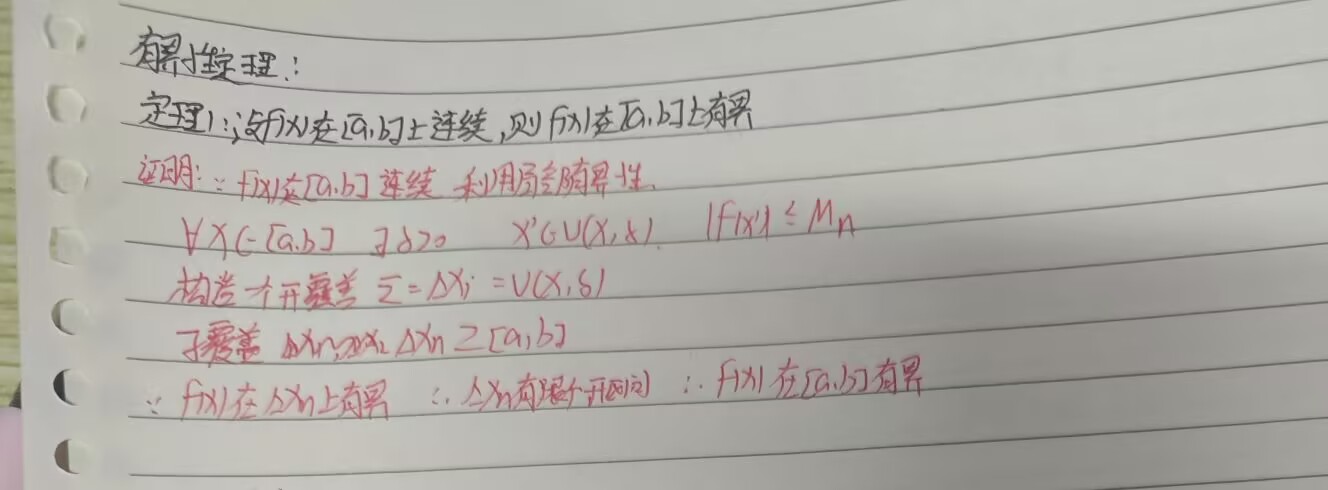 有界性定理:
定理1:设f(x)在[a,b]上连续,则f(x)在[a,b]上有界
证明:∵ f(x)在[a,b]连续 利用局部有界性.
∀x∈[a,b] ∃δ>0 x'∈U(x,δ). |f(x')| ≤ Mn
构造一个开覆盖 Σ=Δxi =U(x,δ)
子覆盖 Δxn ⊇[a,b]
∵ f(x)在Δxn上有界 ∴ Δxn有限个开区间 ∴ f(x)在[a,b]有界